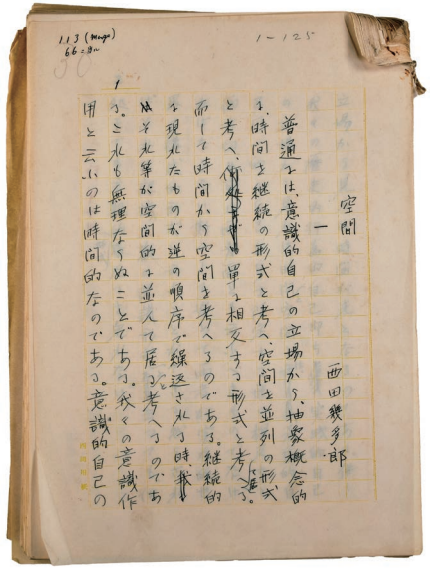 1—125
1
空間
西田幾多郎
一
普通には、意識的自己の立場から、抽象概念的
に、時間を継続の形式と考へ、空間を並列の形式
と考へ、単に相交する形式と考へて居る。
而して時間から空間を考へるのである。継続的
に現れたものが逆の順序で繰返される時、
それ等が空間的に並んで居ると考へるのであ
る。これも無理ならぬことである。我々の意識作
用と云ふのは時間的なのである。意識的自己の